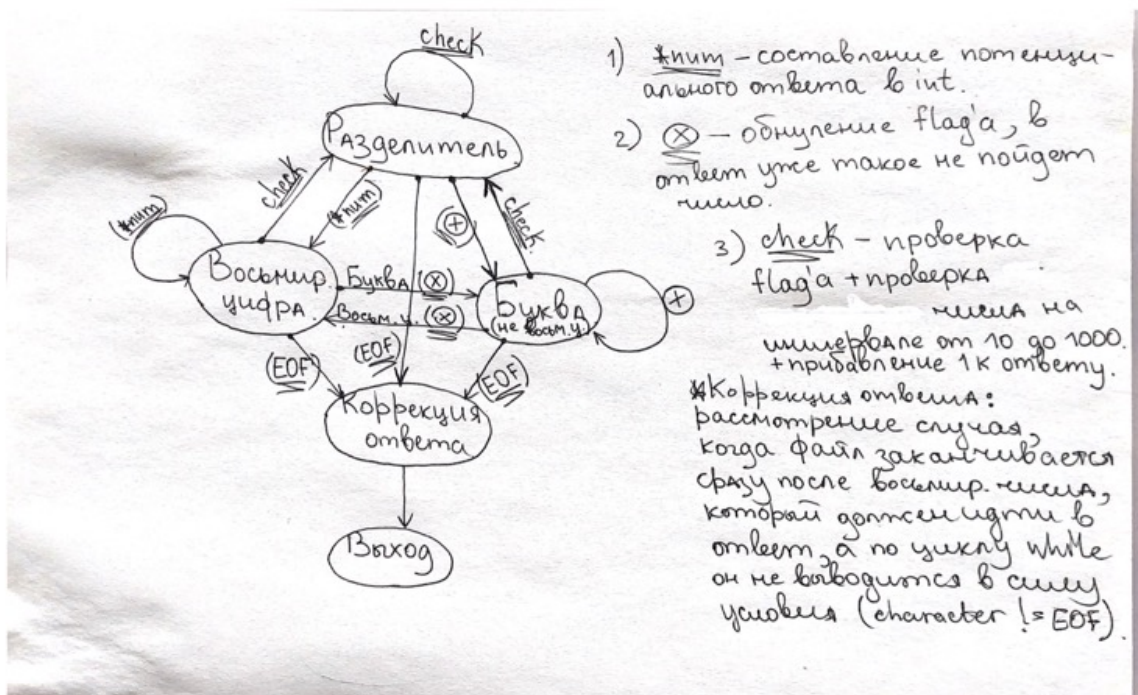 check
Разделитель
check
(*num)
(*num)
(x)
check
Восьмир.
цифра
Буква (x)
Восьм.ц. (x)
Буква
(не восьм.ц.)
(x)
(EOF)
(EOF)
(EOF)
Коррекция
ответа
Выход
1) *num – составление потенци-
ального ответа в int.
2) (x) – обнуление flag'a, в
ответ уже такое не пойдет
число.
3) check – проверка
flag'a + проверка
числа на
интервале от 10 до 1000.
+ прибавление 1 к ответу.
*Коррекция ответа:
рассмотрение случая,
когда файл заканчивается
сразу после восьмир. числа,
который должен идти в
ответ, а по циклу while
он не выводится в силу
условия (character != EOF).